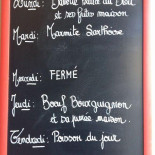 Lundi: Salade du
et ses frites maison
Mardi: Marmite Sarthoise
Mercredi: FERMÉ
Jeudi: Bœuf Bourguignon
et sa purée maison.
Vendredi: Poisson du jour